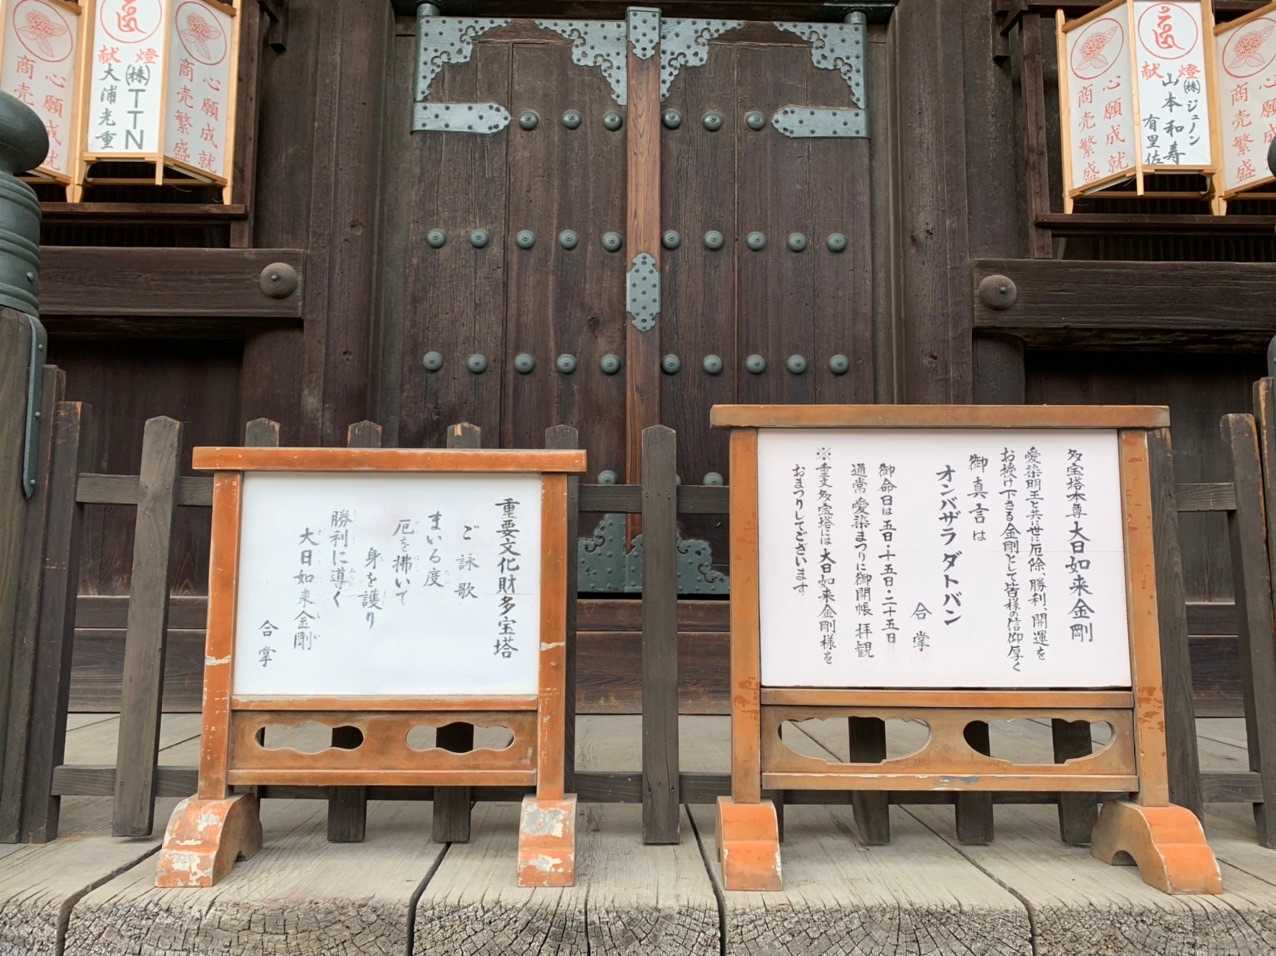 献燈
大浦光重
㈱TTN
商売繁盛
心願成就
重要文化財多宝塔
ご詠歌
まいる度
厄を拂いて
身を護り
勝利に導く
大日如来金剛
合掌
多宝塔本尊 大日如来金剛
愛染明王と共に世に厄除・勝利・開運を
お授け下さる金剛として皆様の信仰厚く
御真言は
オンバザラダトバン
合掌
御命日は五日・十五日・二十五日
通常、愛染まつりに御開帳・拝観
※重文多宝塔は大日如来金剛様を
おまつりしてございます
献燈
㈱ジェニソン
山本和寿
有里佐
心願成就
商売繁盛